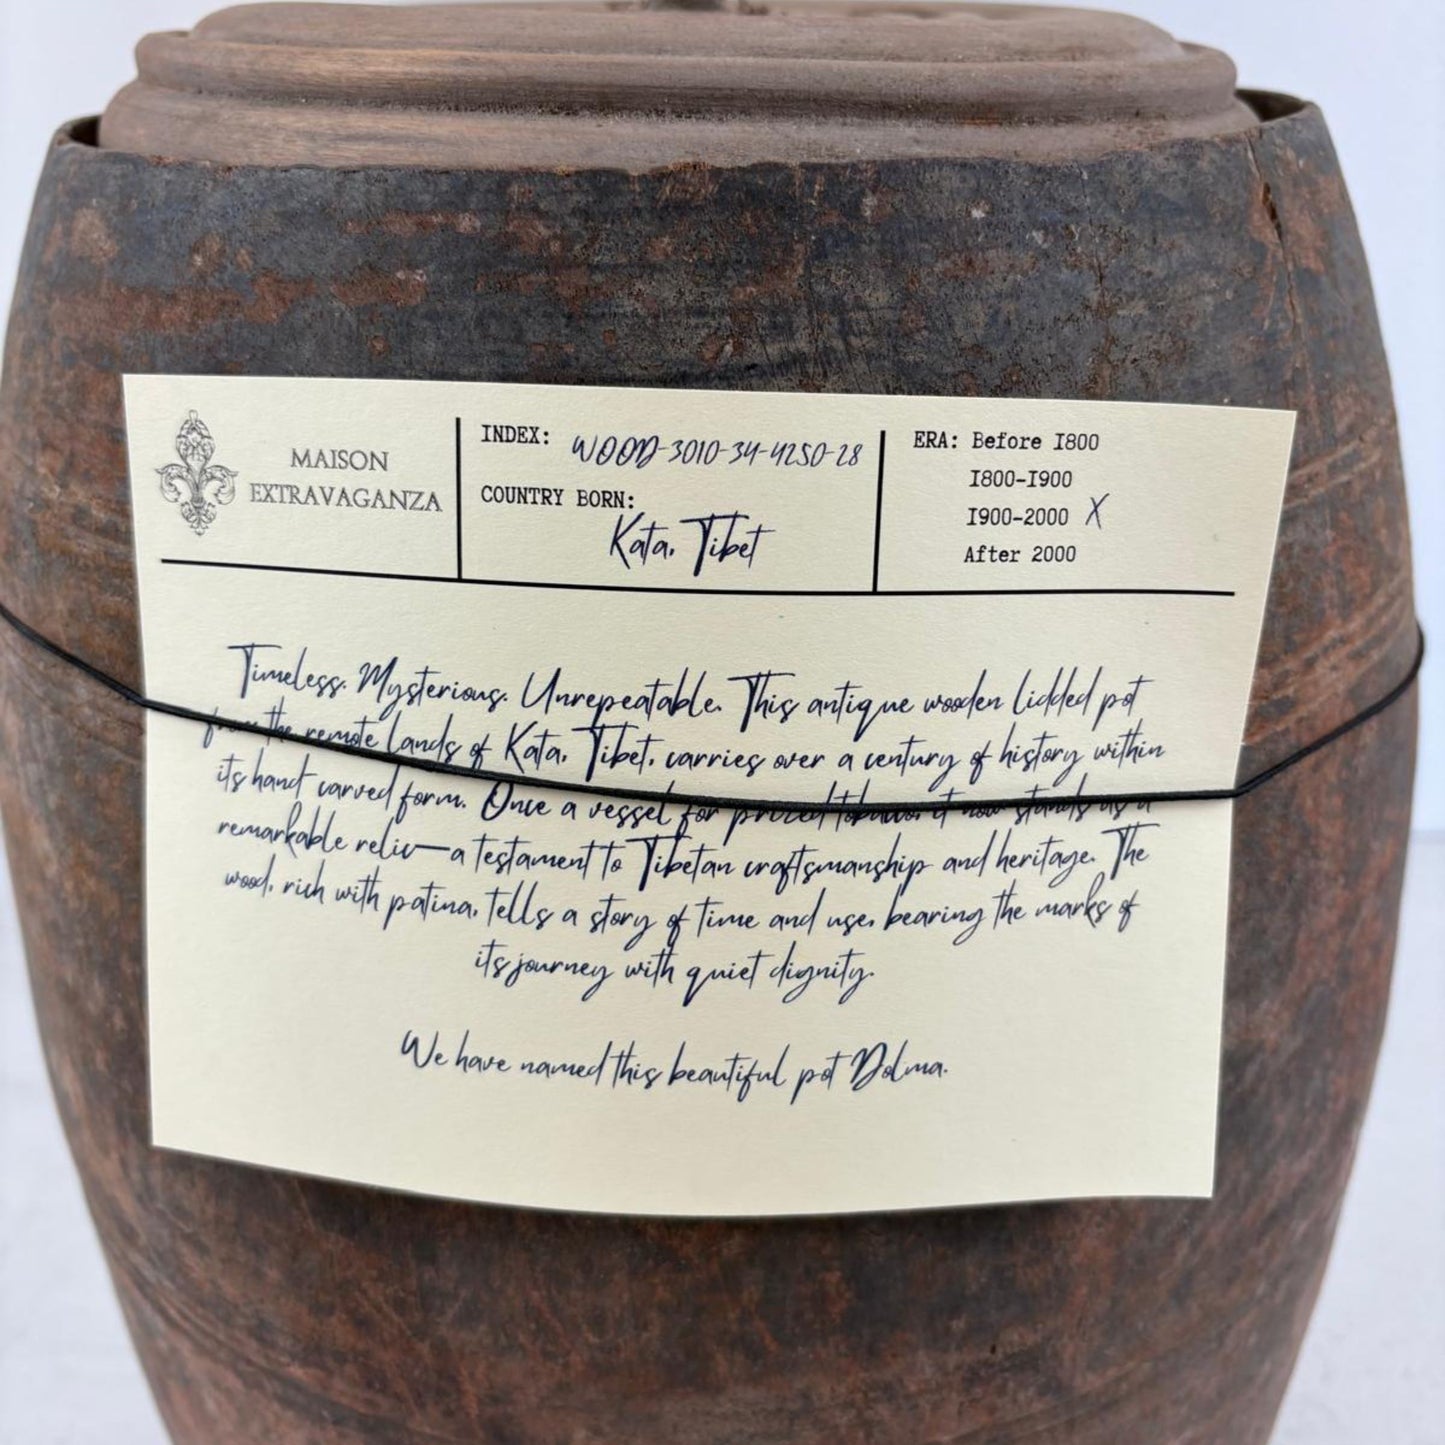 MAISON
EXTRAVAGANZA
INDEX: WOOD-3010-34-4250-28
COUNTRY BORN:
Kata, Tibet
ERA: Before 1800
1800-1900
1900-2000 X
After 2000
Timeless. Mysterious. Unrepeatable. This antique wooden lidded pot
from the remote lands of Kata, Tibet, carries over a century of history within
its hand-carved form. Once a vessel for prized tobacco, it now stands as a
remarkable relic—a testament to Tibetan craftsmanship and heritage. The
wood, rich with patina, tells a story of time and use, bearing the marks of
its journey with quiet dignity.
We have named this beautiful pot Dolma.